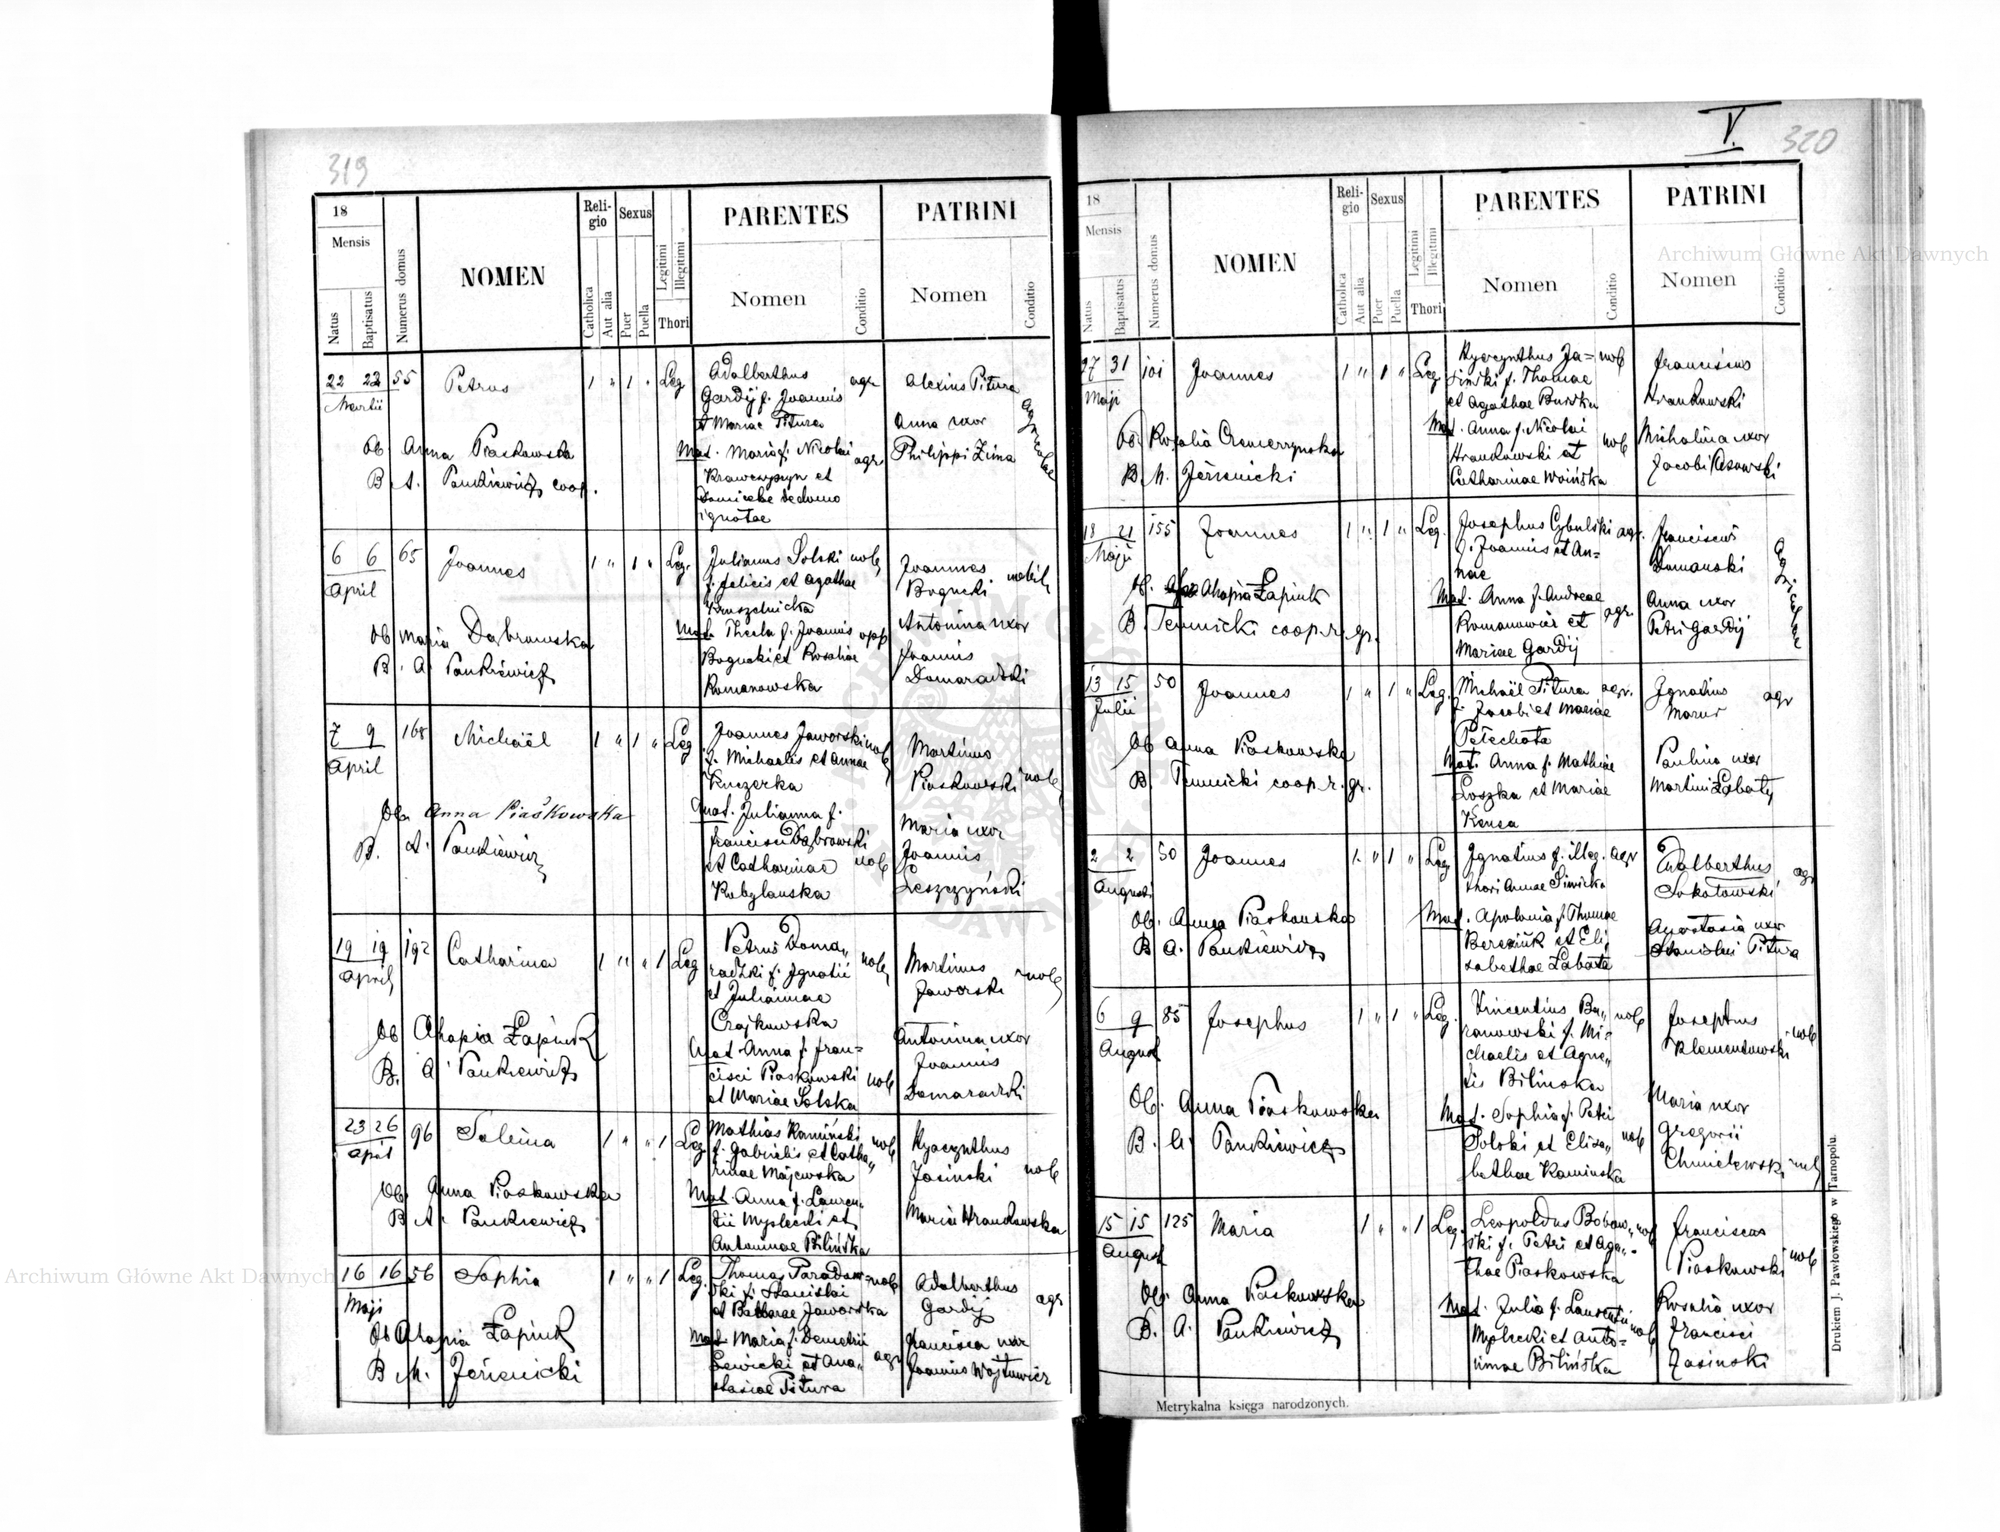 319
18
Mensis
Natus
Baptisatus
Numerus domus
NOMEN
Reli-
gio
Catholica
Aut alia
Sexus
Puer
Puella
Legitimi
Illegitimi
Thori
PARENTES
Nomen
Conditio
PATRINI
Nomen
Conditio
22 22 55 Petrus 1 " 1 " Leg
Martii
Adalberthus agr
Gardij f. Joannis
et Mariae Pitura
Mat. Maria f. Nicolai agr
Krawczyszyn et
ignotae
Alexius Pitura
Anna uxor
Philippi Zima
agricolae
Ob Anna Piaskowska
B A. Pankiewicz coop.
6 6 65 Joannes 1 " 1 " Leg.
April
Julianus Solski nob
f. Felicis et Agathae
Kruszelnicka
Mat. Thecla f. Joannis
Bogucki et Rosaliae
Romanowska
Joannes
Bogucki
Antonina uxor
Joannis
Domaradzki
Ob Maria Dąbrowska
B. A Pankiewicz
7 9 168 Michaël 1 " 1 " Leg
April
Joannes Jaworski nob
f. Michaelis et Annae
Kuczerka
Mat. Julianna f.
Francisci Dąbrowski
et Catharinae nob
Kobylanska
Martinus
Piaskowski nob
Maria uxor
Joannis
Leszczyński
Ob Anna Piaskowska
B. A. Pankiewicz
19 19 192 Catharina 1 " " 1 Leg
April
Petrus Doma„
radzki f. Ignatii nob
et Juliannae
Czajkowska
Mat. Anna f. Fran=
cisci Piaskowski nob
et Mariae Solska
Martinus
Jaworski nob
Antonina uxor
Joannis
Domaradzki
Ob Ahapia Łapiuk
B. A Pankiewicz
23 26 96 Salina 1 " " 1 Leg
April
Mathias Kamiński nob
f. Gabrielis et Catha„
rinae Majewska
Mat. Anna f. Lauren„
tii Myslecki et
Antoninae Bilińska
Hyacynthus
Jasinski nob
Maria Hrankowska
Ob. Anna Piaskowska
B A. Pankiewicz
16 16 56 Sophia 1 " " 1 Leg.
Maji
Thomas Paradow= nob
ski f. Stanislai
et Barbarae Jaworska
Mat. Maria f. Demetrii
Lewicki et Ana„ agr
stasiae Pitura
Adalberthus
Gardij agr
Francisca uxor
Joannis Wojtuwicz
Ob Ahapia Łapiuk
B M. Jezienicki
V.
320
18
Mensis
Natus
Baptisatus
Numerus domus
NOMEN
Reli-
gio
Catholica
Aut alia
Sexus
Puer
Puella
Legitimi
Illegitimi
Thori
PARENTES
Nomen
Conditio
PATRINI
Nomen
Conditio
27 31 101 Joannes 1 " 1 " Leg
Maji
Hyacynthus Ja= nob
sinski f. Thomae
et Agathae
Mat. Anna f. Nicolai nob
Hrankowski et
Catharinae Woińska
Franciscus
Hrankowski
Michalina uxor
Jacobi
Ob. Rosalia
B. M. Jezienicki
18 21 155 Joannes 1 " 1 " Leg.
Maji
Josephus Cybulski agr.
f. Joannis et An=
nae
Mat. Anna f. Andreae
Romanowicz et agr.
Mariae Gardij
Franciscus
Domanski
Anna uxor
Petri Gardij
agricolae
Ob. Ahapia Łapiuk
B. Temnicki coop. r. gr.
13 15 50 Joannes 1 " 1 " Leg.
Julii
Michaël Pitura agr.
f. Jacobi et Mariae
Petechota
Mat. Anna f. Mathiae
Loszka et Mariae
Ignatius
Mazur agr
Paulina uxor
Martini Łabaty
Ob Anna Piaskowska
B. Temnicki coop. r. gr.
2 2 50 Joannes 1 " 1 " Leg
Augusti
Ignatius f. illeg. agr
thori Annae Siwicka
Mat. Apolonia f. Thomae
Bereziuk et Eli„
sabethae Łabata
Adalberthus
Sokołowski agr
Anastasia uxor
Stanislai Pitura
Ob. Anna Piaskowska
B A. Pankiewicz
6 9 85 Josephus 1 " 1 " Leg.
August
Vincentius Ba„ nob
ranowski f. Mi=
chaelis et Agne„
tis Bilinska
Mat. Sophia f. Petri
Solski et Elisa„ nob
bethae Kaminska
Josephus
Klementowski nob
Maria uxor
Gregorii
Chmielewski nob
Ob. Anna Piaskowska
B. A. Pankiewicz
15 15 125 Maria 1 " " 1 Leg.
August
Leopoldus Bobow„ nob
ski f. Petri et Aga„
thae Piaskowska
Mat. Julia f. Laurentii nob
Myslecki et Anto=
ninae Bilińska
Franciscus
Piaskowski nob
Rosalia uxor
Francisci
Jasinski
Ob. Anna Piaskowska
B. A. Pankiewicz
Metrykalna księga narodzonych.
Drukiem J. Pawłowskiego w Tarnopolu.
Archiwum Główne Akt Dawnych
Archiwum Główne Akt Dawnych
ARCHIWUM GŁÓWNE AKT DAWNYCH